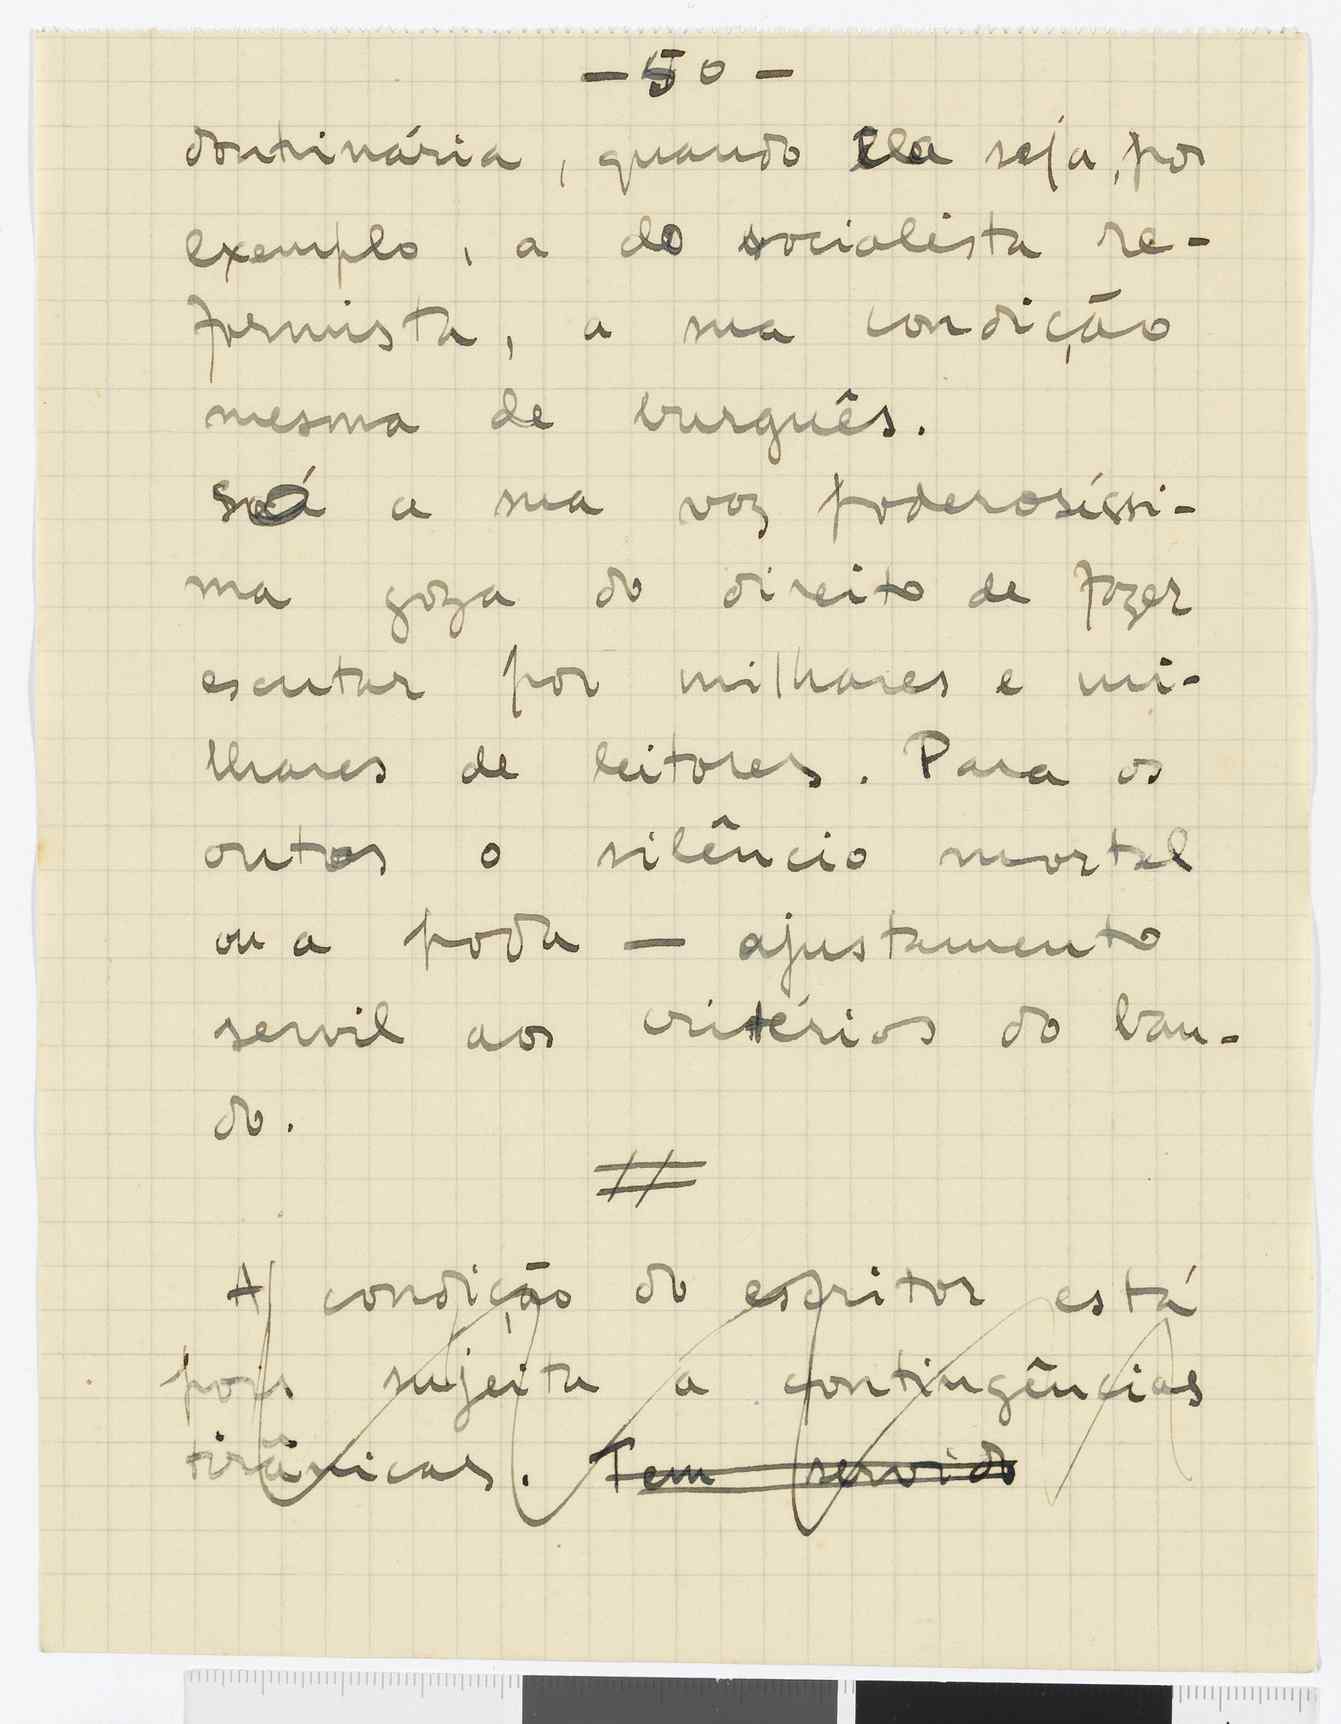 - 50 -
doutrinária, quando ela seja, por
exemplo, a do socialista re-
formista, a sua condição
mesma de burguês.
Só a sua voz poderosíssi-
ma goza do direito de fazer
escutar por milhares e mi-
lhares de leitores. Para os
outros o silêncio mortal
ou a poda — ajustamento
servil aos critérios do ban-
do.
//
A condição do escritor está
pois sujeita a contingências
tirânicas. Tem servido